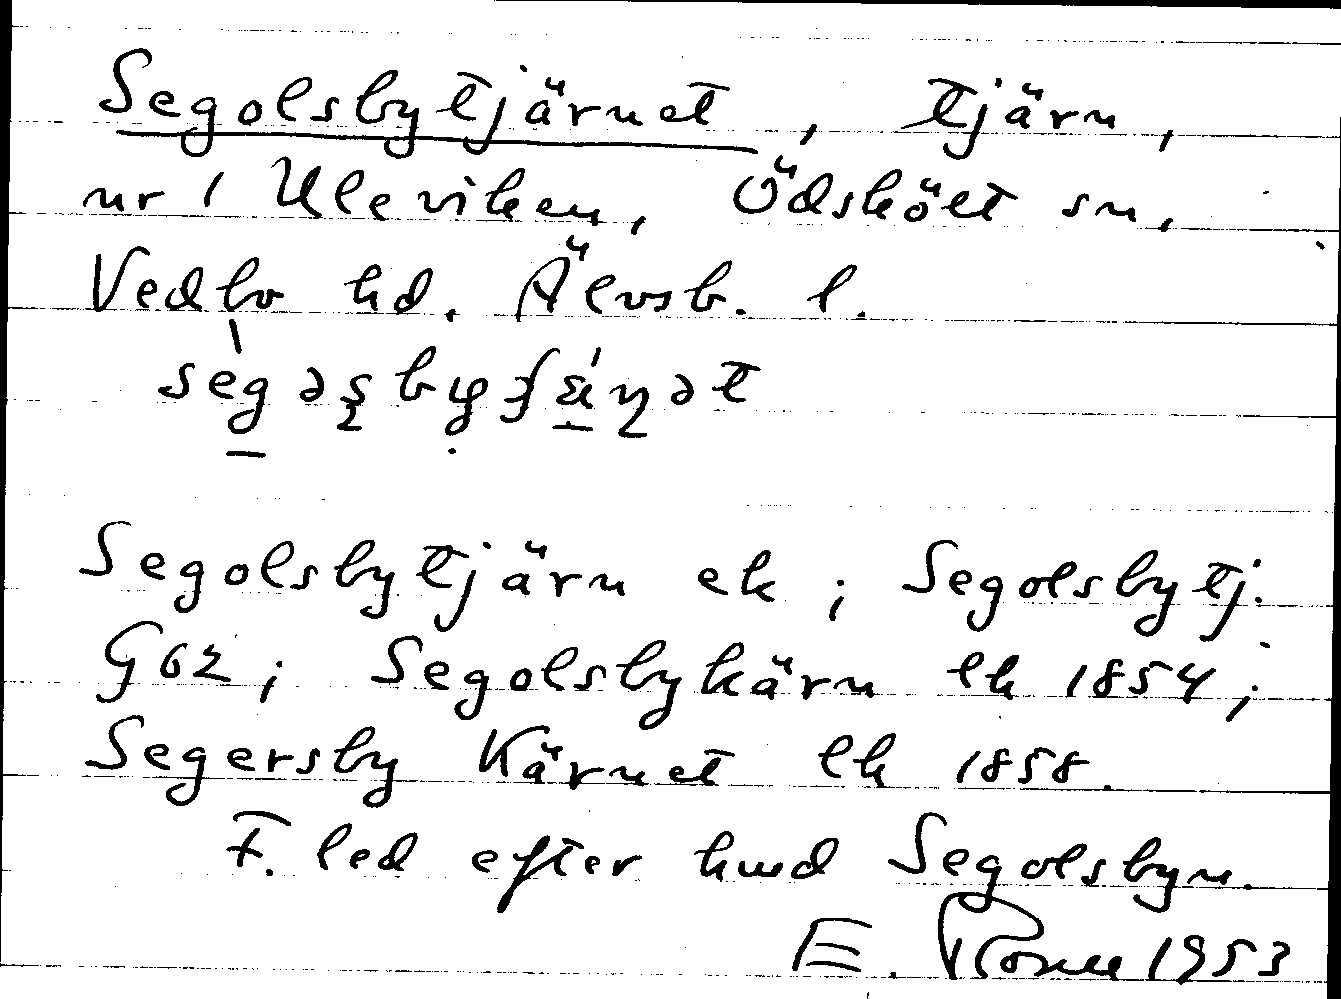 Segolsbytjärnet, tjärn,
nr 1 Uleviken, Ödskölt sn,
Vedbo hd. Älvsb. l.
Segolsbytjärn ek; Segolsbytj.
G 62; Segolsbykärn lh 1854;
Segersby Kärnet lh 1858.
F. led efter hmd Segolsbyn.
E. 1953